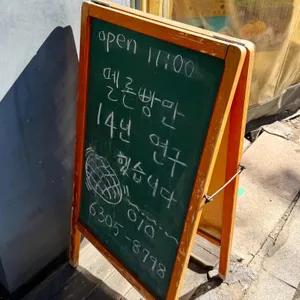 open 11:00
멜론빵만
14년 연구
했습니다
6305-8778